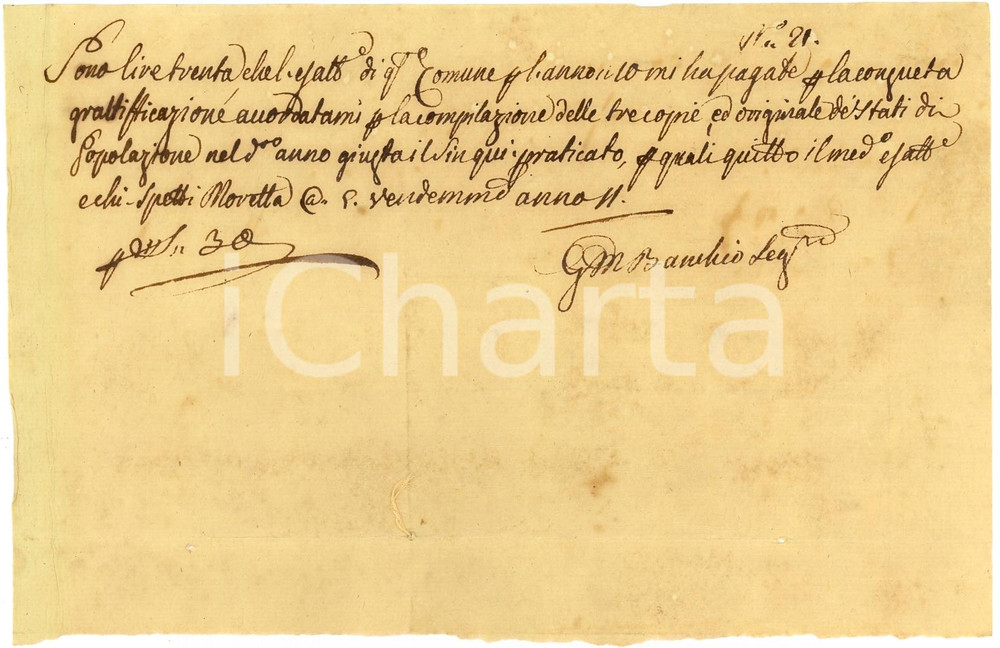 N.° 21.
Sono lire trenta che l'esatt.e di q.o Comune p l'anno 10 mi ha pagate p la consueta
grattifficazione accordatami p la compilazione delle tre copie, ed originale de' Stati di
Popolazione nel d.o anno giusta il sin qui praticato, p quali quitto il med.o esatt.e
e chi spetti Moretta @. 5. vendemm.e anno 11.
p L. 30
G M Banchio Seg.rio
iCharta